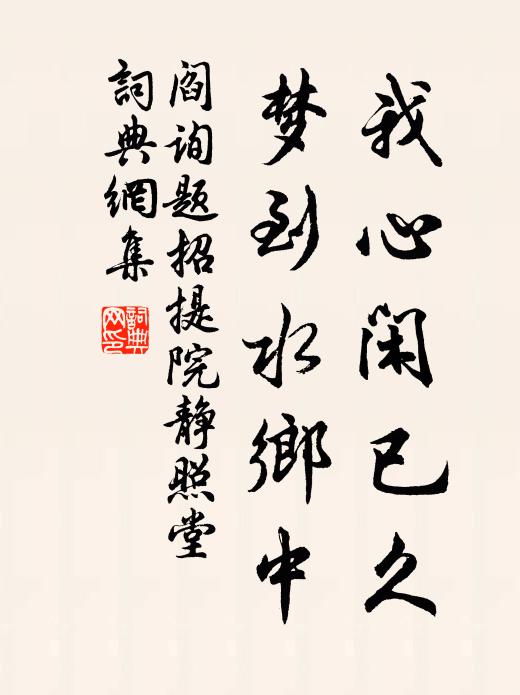 我心闲已久
梦到水鄉中
阎询题招提院静照堂
詞典網集
詞典网印